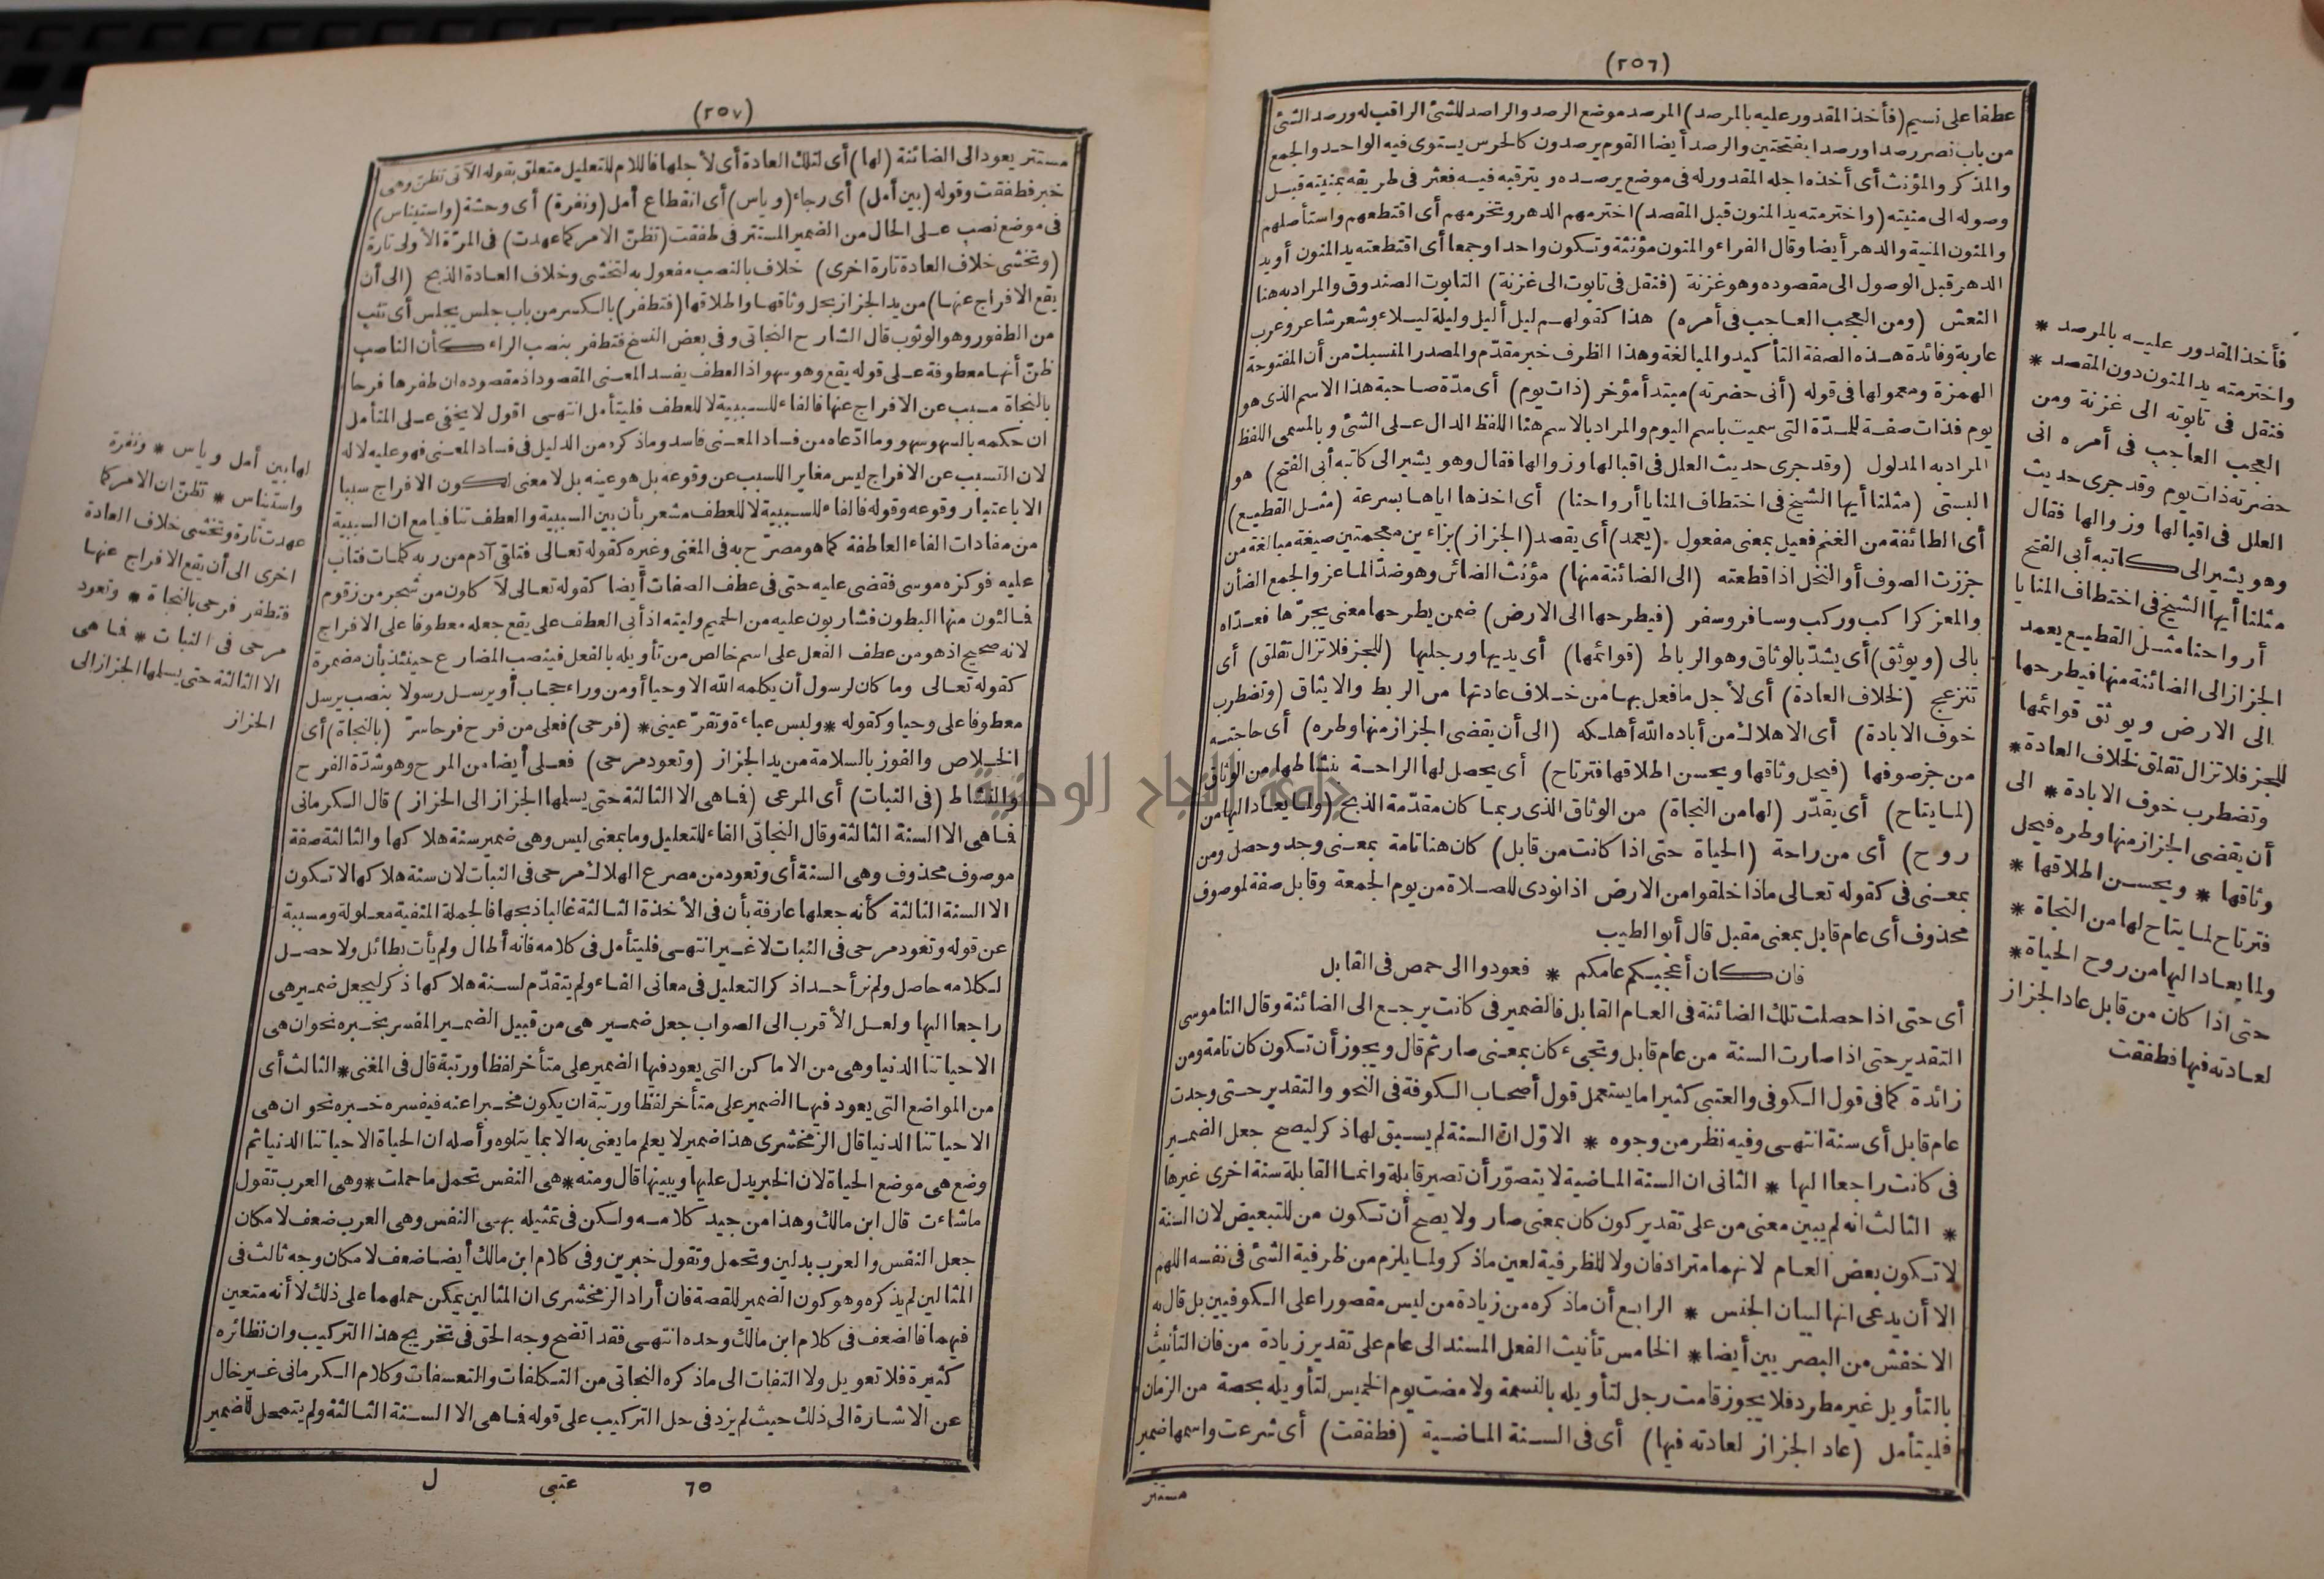 (٢٥٦)
عطفا على نسيم (فأخذ المقدور عليه بالمرصد) المرصد موضع الرصد والراصد للشئ الراقب له ورصد الشئ
من باب نصر رصدا ورصدا بفتحتين والرصد أيضا القوم يرصدون كالحرس يستوى فيه الواحد والجمع
والمذكر والمؤنث أى أخذه اجله المقدور له فى موضع يرصده ويترقبه فيه فعثر فى طريقه بمنيته قبل
وصوله الى منيته (واخترمته يد المنون قبل المقصد) اخترمهم الدهر وتخرمهم أى اقتطعهم واستأصلهم
والمنون المنية والدهر أيضا وقال الفراء والمنون مؤنثة وتكون واحدا وجمعا أى اقتطعته يد المنون أو يد
الدهر قبل الوصول الى مقصوده وهو غزنة (فنقل فى تابوت الى غزنة) التابوت الصندوق والمراد به هنا
النعش (ومن العجب العاجب فى أمره) هذا كقولهم ليل أليل وليلة ليلاء وشعر شاعر وعرب
عاربة وفائدة هذه الصفة التأكيد والمبالغة وهذا الظرف خبر مقدّم والمصدر المنسبك من أن المفتوحة
الهمزة ومعمولها فى قوله (أنى حضرته) مبتدأ مؤخر (ذات يوم) أى مدّة صاحبة هذا الاسم الذى هو
يوم فذات صفة للمدّة التى سميت باسم اليوم والمراد بالاسم هنا اللفظ الدال على الشئ وبالمسمى اللفظ
المراد به المدلول (وقد جرى حديث العلل فى اقبالها وزوالها فقال وهو يشير الى كاتبه أبى الفتح) هو
البستى (مثلنا أيها الشيخ فى اختطاف المنايا أرواحنا) أى اخذها اياها بسرعة (مثل القطيع)
أى الطائفة من الغنم فعيل بمعنى مفعول (يعمد) أى يقصد (الجزاز) بزاءين معجمتين صيغة مبالغة من
جززت الصوف أو النخل اذا قطعته (الى الضائنة منها) مؤنث الضائن وهو ضدّ الماعز والجمع الضأن
والمعز كراكب وركب وسافر وسفر (فيطرحها الى الارض) ضمن يطرحها معنى يجرّها فعدّاه
بالى (ويوثق) أى يشدّ بالوثاق وهو الرباط (قوائمها) أى يديها ورجليها (للجز فلا تزال تقلق) أى
تنزعج (لخلاف العادة) أى لأجل ما فعل بها من خلاف عادتها من الربط والايثاق (وتضطرب
خوف الابادة) أى الاهلاك من أباده الله أهلكه (الى أن يقضى الجزاز منها وطره) أى حاجته
من جز صوفها (فيحل وثاقها ويحسن اطلاقها فترتاح) أى يحصل لها الراحة بنشاطها من الوثاق
(لما يتاح) أى يقدّر (لها من النجاة) من الوثاق الذى ربما كان مقدّمة الذبح (ولما يعاد اليها من
روح) أى من راحة (الحياة حتى اذا كانت من قابل) كان هنا تامة بمعنى وجد وحصل ومن
بمعنى فى كقوله تعالى ماذا خلقوا من الارض اذا نودى للصلاة من يوم الجمعة وقابل صفة لموصوف
محذوف أى عام قابل بمعنى مقبل قال أبو الطيب
فان كان أعجبكم عامكم * فعودوا الى حمص فى القابل
أى حتى اذا حصلت تلك الضائنة فى العام القابل فالضمير فى كانت يرجع الى الضائنة وقال الناموسى
التقدير حتى اذا صارت السنة من عام قابل وتجىء كان بمعنى صار ثم قال ويجوز أن تكون كان تامة ومن
زائدة كما فى قول الكوفى والعتبى كثيرا ما يستعمل قول أصحاب الكوفة فى النحو والتقدير حتى وجدت
عام قابل أى سنة انتهى وفيه نظر من وجوه * الاوّل انّ السنة لم يسبق لها ذكر ليصح جعل الضمير
فى كانت راجعا اليها * الثانى ان السنة الماضية لا يتصوّر أن تصير قابلة وانما القابلة سنة اخرى غيرها
* الثالث انه لم يبين معنى من على تقدير كون كان بمعنى صار ولا يصح أن تكون من للتبعيض لان السنة
لا تكون بعض العام لانهما مترادفان ولا للظرفية لعين ما ذكر ولما يلزم من ظرفية الشئ فى نفسه اللهم
الا أن يدعى انها لبيان الجنس * الرابع أن ما ذكره من زيادة من ليس مقصورا على الكوفيين بل قال به
الاخفش من البصريين أيضا * الخامس تأنيث الفعل المسند الى عام على تقدير زيادة من فان التأنيث
بالتأويل غير مطرد فلا يجوز قامت رجل لتأويله بالنسمة ولا مضت يوم الخميس لتأويله بحصة من الزمان
فليتأمل (عاد الجزاز لعادته فيها) أى فى السنة الماضية (فطفقت) أى شرعت واسمها ضمير
مستتر
فأخذ المقدور عليه بالمرصد *
واخترمته يد المنون دون المقصد *
فنقل فى تابوته الى غزنة ومن
العجب العاجب فى أمره انى
حضرته ذات يوم وقد جرى حديث
العلل فى اقبالها وزوالها فقال
وهو يشير الى كاتبه أبى الفتح
مثلنا أيها الشيخ فى اختطاف المنايا
أرواحنا مثل القطيع يعمد
الجزاز الى الضائنة منها فيطرحها
الى الارض ويوثق قوائمها
للجز فلا تزال تقلق لخلاف العادة *
وتضطرب خوف الابادة * الى
أن يقضى الجزاز منها وطره فيحل
وثاقها * ويحسن اطلاقها *
فترتاح لما يتاح لها من النجاة *
ولما يعاد اليها من روح الحياة *
حتى اذا كان من قابل عاد الجزاز
لعادته فيها فطفقت
(٢٥٧)
مستتر يعود الى الضائنة (لها) أى لتلك العادة أى لأجلها فاللام للتعليل متعلق بقوله الآتى تظنّ وهى
خبر فطفقت وقوله (بين أمل) أى رجاء (وياس) أى انقطاع أمل (ونفرة) أى وحشة (واستيناس)
فى موضع نصب على الحال من الضمير المستتر فى طفقت (تظنّ الامر كما عهدت) فى المرّة الأولى تارة
(وتخشى خلاف العادة تارة اخرى) خلاف بالنصب مفعول به لتخشى وخلاف العادة الذبح (الى أن
يقع الافراج عنها) من يد الجزاز بحل وثاقها واطلاقها (فتطفر) بالكسر من باب جلس يجلس أى تثب
من الطفور وهو الوثوب قال الشارح النجاتى وفى بعض النسخ فتطفر بنصب الراء كأن الناصب
ظنّ أنها معطوفة على قوله يقع وهو سهو اذ العطف يفسد المعنى المقصود اذ مقصوده ان طفرها فرحا
بالنجاة مسبب عن الافراج عنها فالفاء للسببية لا للعطف فليتأمل انتهى اقول لا يخفى على المتأمل
ان حكمه بالسهو سهو وما ادّعاه من فساد المعنى فاسد وما ذكره من الدليل فى فساد المعنى فهو عليه لا له
لان التسبب عن الافراج ليس مغاير المسبب عن وقوعه بل هو عينه بل لا معنى لكون الافراج سببا
الا باعتبار وقوعه وقوله فالفاء للسببية لا للعطف مشعر بأن بين السببية والعطف تنافيا مع ان السببية
من مفادات الفاء العاطفة كما هو مصرّح به فى المغنى وغيره كقوله تعالى فتلقى آدم من ربه كلمات فتاب
عليه فوكزه موسى فقضى عليه حتى فى عطف الصفات أيضا كقوله تعالى لآكلون من شجر من زقوم
فمالئون منها البطون فشاربون عليه من الحميم وليته اذ أبى العطف على يقع جعله معطوفا على الافراج
لانه صحيح اذ هو من عطف الفعل على اسم خالص من تأويله بالفعل فينصب المضارع حينئذ بأن مضمرة
كقوله تعالى وما كان لرسول أن يكلمه الله الا وحيا أو من وراء حجاب أو يرسل رسولا بنصب يرسل
معطوفا على وحيا وكقوله * ولبس عباءة وتقرّ عينى * (فرحى) فعلى من فرح فرحا سرّ (بالنجاة) أى
الخلاص والفوز بالسلامة من يد الجزاز (وتعود مرحى) فعلى أيضا من المرح وهو شدّة الفرح
والنشاط (فى النبات) أى المرعى (فما هى الا الثالثة حتى يسلمها الجزاز الى الخزاز) قال الكرمانى
فما هى الا السنة الثالثة وقال النجاتى الفاء للتعليل وما بمعنى ليس وهى ضمير سنة هلاكها والثالثة صفة
موصوف محذوف وهى السنة أى وتعود من مصرع الهلاك مرحى فى النبات لان سنة هلاكها لا تكون
الا السنة الثالثة كأنه جعلها عارفة بأن فى الأخذة الثالثة غالبا ذبحها فالجملة المنفية معلولة ومسببة
عن قوله وتعود مرحى فى النبات لا غير انتهى فليتأمل فى كلامه فانه أطال ولم يأت بطائل ولا حصل
لكلامه حاصل ولم نر أحدا ذكر التعليل فى معانى الفاء ولم يتقدّم لسنة هلاكها ذكر ليجعل ضمير هى
راجعا اليها ولعل الأقرب الى الصواب جعل ضمير هى من قبيل الضمير المفسر بخبره نحو ان هى
الا حياتنا الدنيا وهى من الاماكن التى يعود فيها الضمير على متأخر لفظا ورتبة قال فى المغنى * الثالث أى
من المواضع التى يعود فيها الضمير على متأخر لفظا ورتبة ان يكون مخبرا عنه فيفسره خبره نحو ان هى
الا حياتنا الدنيا قال الزمخشرى هذا ضمير لا يعلم ما يعنى به الا بما يتلوه وأصله ان الحياة الا حياتنا الدنيا ثم
وضع هى موضع الحياة لان الخبر يدل عليها ويبينها قال ومنه * هى النفس تحمل ما حملت * وهى العرب تقول
ما شاءت قال ابن مالك وهذا من جيد كلامه ولكن فى تمثيله بهى النفس وهى العرب ضعف لامكان
جعل النفس والعرب بدلين وتحمل وتقول خبرين وفى كلام ابن مالك أيضا ضعف لامكان وجه ثالث فى
المثالين لم يذكره وهو كون الضمير للقصة فان أراد الزمخشرى ان المثالين يمكن حملهما على ذلك لا أنه متعين
فيهما فالضعف فى كلام ابن مالك وحده انتهى فقد اتضح وجه الحق فى تخريج هذا التركيب وان نظائره
كثيرة فلا تعويل ولا التفات الى ما ذكره النجاتى من التكلفات والتعسفات وكلام الكرمانى غير خال
عن الاشارة الى ذلك حيث لم يزد فى حل التركيب على قوله فما هى الا السنة الثالثة ولم يتمحل للضمير
٦٥ عتبى ل
لها بين أمل وياس * ونفرة
واستناس * تظنّ ان الامر كما
عهدت تارة وتخشى خلاف العادة
اخرى الى أن يقع الافراج عنها
فتطفر فرحى بالنجاة * وتعود
مرحى فى النبات * فما هى
الا الثالثة حتى يسلمها الجزاز الى
الخزاز
جامعة النجاح الوطنية